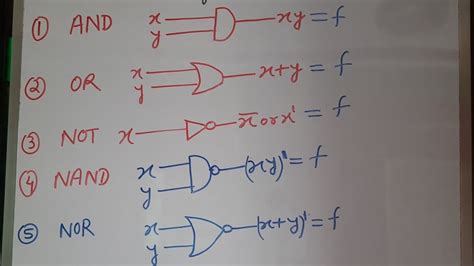 ① AND x y xy = f
② OR x y x+y = f
③ NOT x x̅ or x' = f
④ NAND x y (xy)' = f
⑤ NOR x y (x+y)' = f